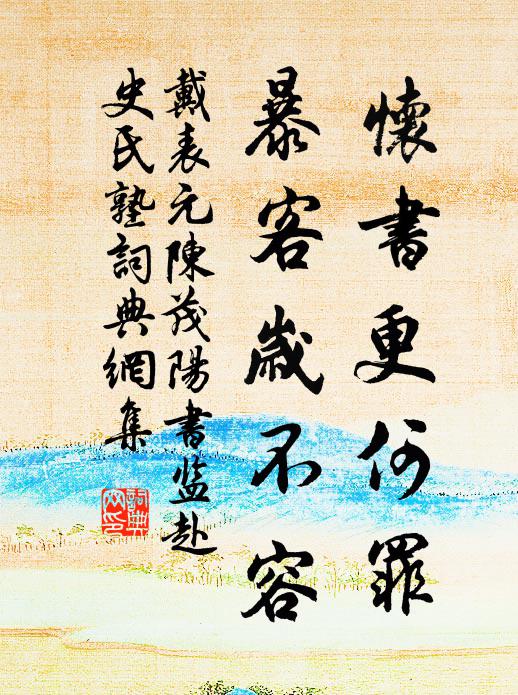 懷書更何罪
暴客歲不容
戴表元陳茂陽書監赴
史氏塾詞典網集
詞典網印